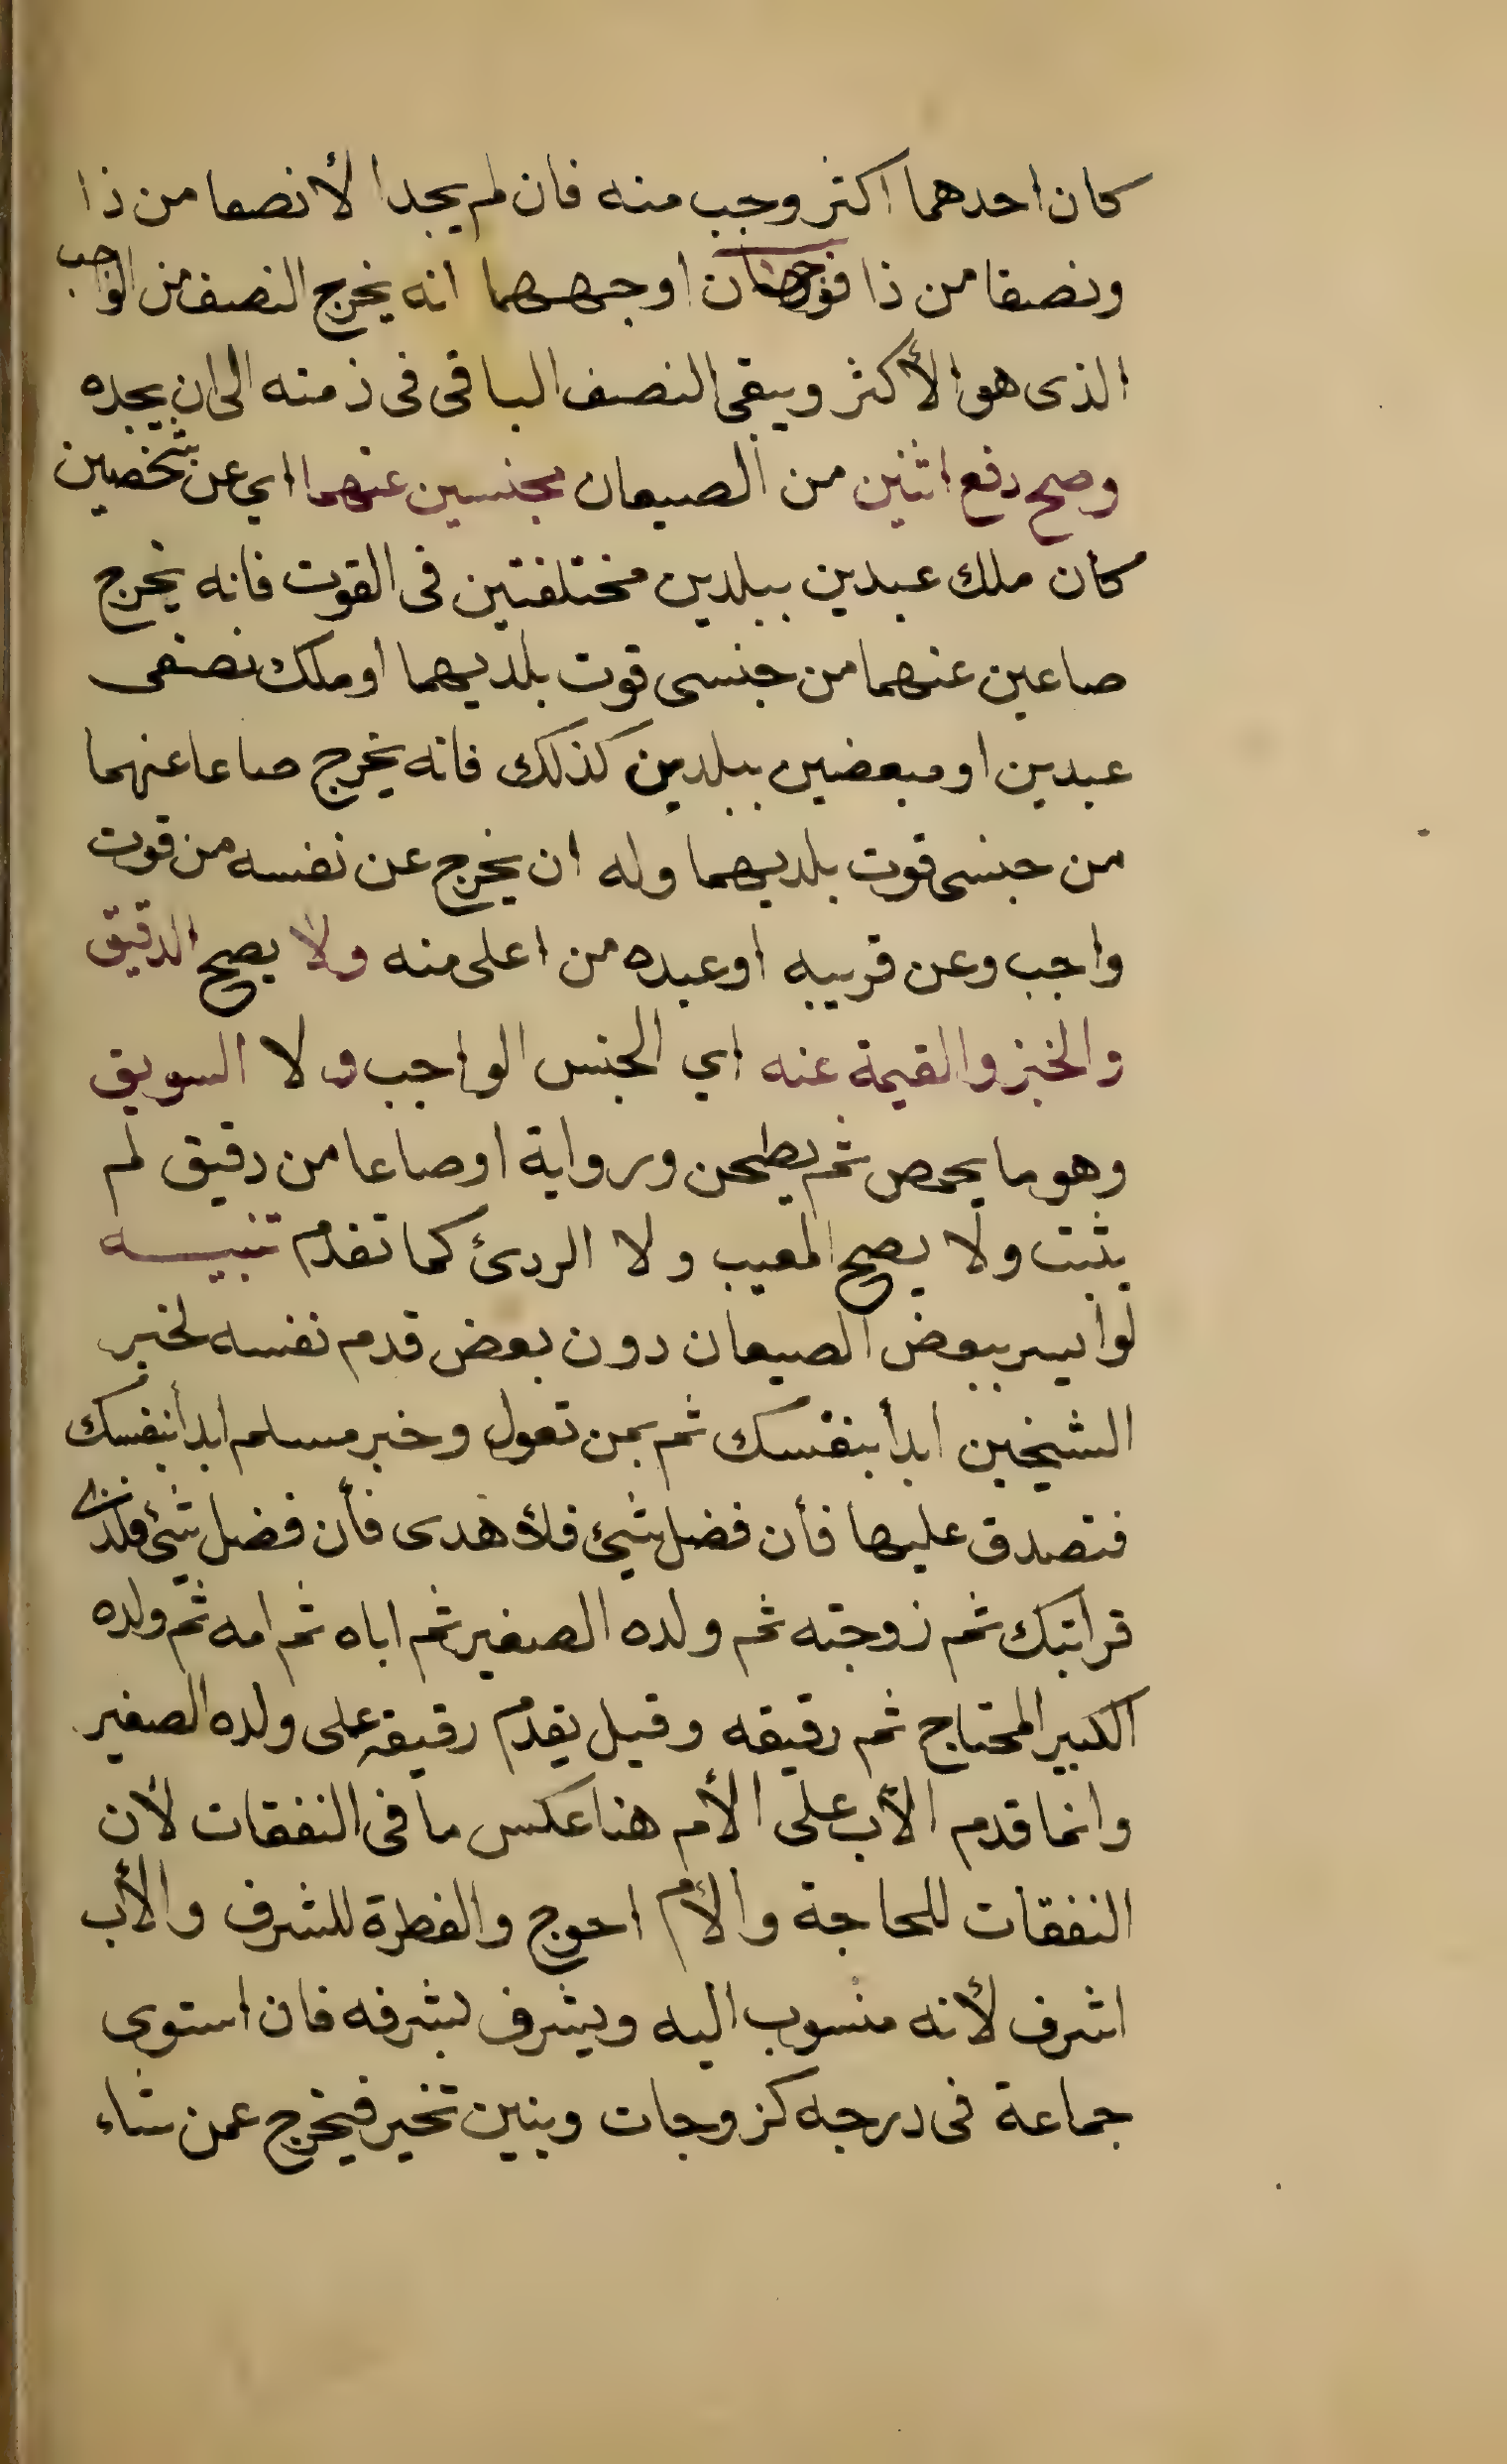 كان احدهما اكثر وجب منه فان لم يجد الأنصفا من ذا
ونصفا من ذا فوجهان اوجههما انه يخرج النصف من الواجب
الذى هو الأكثر ويبقى النصف الباقى فى ذمته الى ان يجده
وصح دفع اثنين من الصيعان بجنسين عنهما اي عن شخصين
كان ملك عبدين ببلدين مختلفتين فى القوت فانه يخرج
صاعين عنهما من جنسى قوت بلديهما او ملك نصفى
عبدين او مبعضين ببلدين كذلك فانه يخرج صاعا عنهما
من جنسى قوت بلديهما وله ان يخرج عن نفسه من قوت
واجب وعن قريبه او عبده من اعلى منه ولا يصح الدقيق
والخبز والقيمة عنه اي الجنس الواجب ولا السويق
وهو ما يحمص ثم يطحن ورواية او صاعا من دقيق لم
يثبت ولا يصح المعيب ولا الردئ كما تقدم تنبيه
لو ايسر ببعض الصيعان دون بعض قدم نفسه لخبر
الشيخين ابدأ بنفسك ثم بمن تعول وخبر مسلم ابدأ بنفسك
فتصدق عليها فأن فضل شئ فلأهدى فأن فضل شئ فلذى
قرابتك ثم زوجته ثم ولده الصغير ثم اباه ثم امه ثم ولده
الكبير المحتاج ثم رقيقه وقيل يقدم رقيقه على ولده الصغير
وانما قدم الأب على الأم هنا عكس ما فى النفقات لأن
النفقات للحاجة والأم احوج والفطرة للشرف والأب
اشرف لأنه منسوب اليه ويشرف بشرفه فان استوى
جماعة فى درجه كزوجات وبنين تخير فيخرج عمن شاء